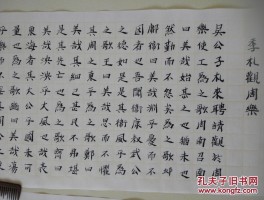 季札觀周樂
吳公子札來聘請觀於周
樂使工為之歌周南召南
曰美哉始基之矣猶未也
然勤而不怨矣為之歌邶
鄘衛曰美哉淵乎憂而不
困者也吾聞衛康叔武公
之德如是是其衛風乎為
之歌王曰美哉思而不懼
其周之東乎為之歌鄭曰
美哉其細已甚民弗堪也
是其先亡乎為之歌齊曰
美哉泱泱乎大風也哉表
東海者其大公乎國未可
量也為之歌
乎樂而不
孔夫子旧书网